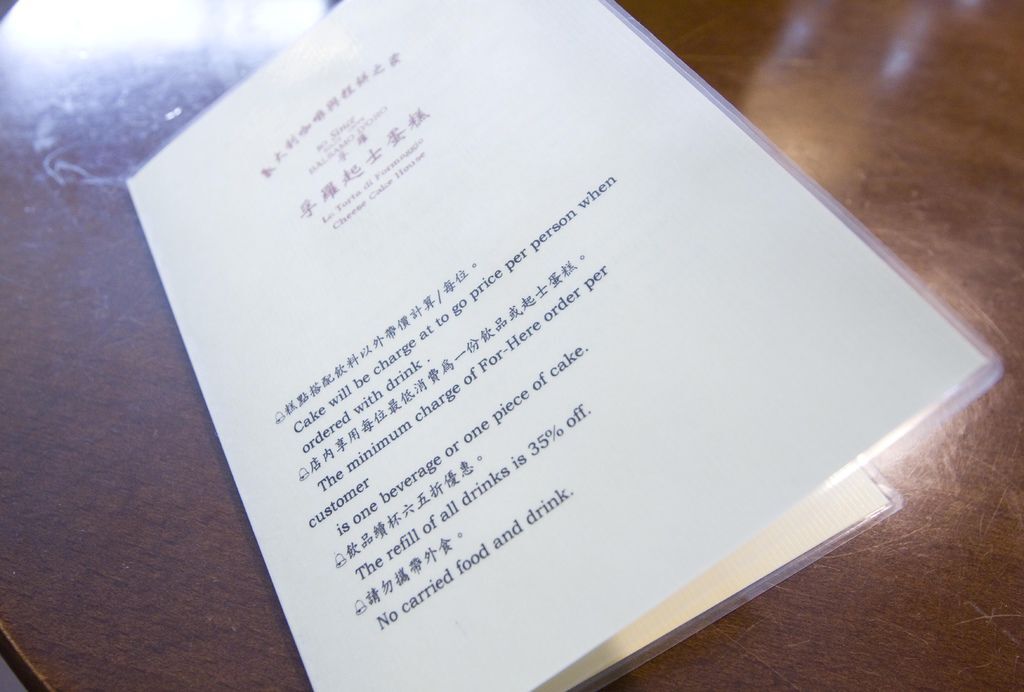 義大利咖啡與糕餅之家
Since
BALSAMO D'ORO
孛羅
孛羅起士蛋糕
Le Torta di Formaggio
Cheese Cake House
糕點搭配飲料以外帶價計算/每位。
Cake will be charge at to go price per person when
ordered with drink .
店內享用每位最低消費為一份飲品或起士蛋糕。
The minimum charge of For-Here order per
customer
is one beverage or one piece of cake.
飲品續杯六五折優惠。
The refill of all drinks is 35% off.
請勿攜帶外食。
No carried food and drink.